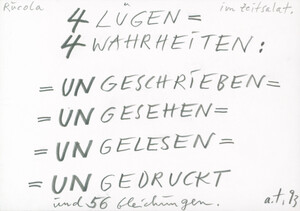 Rūrola im Zeitsalat.
4 LÜGEN =
4 WAHRHEITEN:
= UNGESCHRIEBEN =
= UNGESEHEN =
= UNGELESEN =
= UNGEDRUCKT
und 56 Gleichungen. a.t, 93